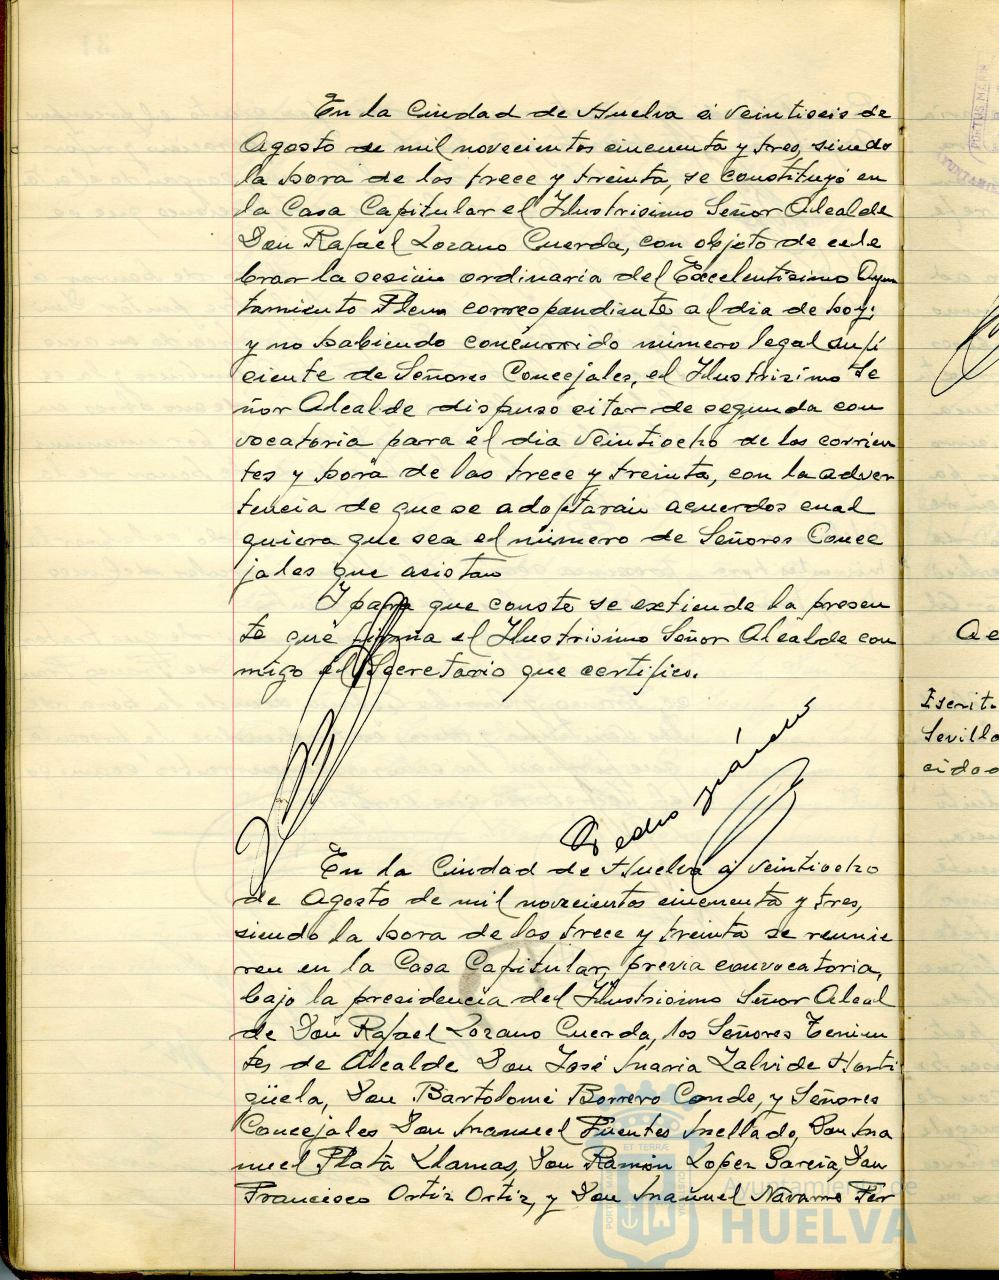 En la Ciudad de Huelva á veintiseis de
Agosto de mil novecientos cincuenta y tres, siendo
la hora de las trece y treinta, se constituyó en
la Casa Capitular el Ilustrisimo Señor Alcalde
Don Rafael Lozano Cuerda, con objeto de cele
brar la sesión ordinaria del Excelentísimo Ayun
tamiento Pleno correspondiente al dia de hoy;
y no habiendo concurrido número legal sufi
ciente de Señores Concejales, el Ilustrisimo Se
ñor Alcalde dispuso citar de segunda con
vocatoria para el dia veintiocho de los corrien
tes y hora de las trece y treinta, con la adver
tencia de que se adoptarán acuerdos cual
quiera que sea el número de Señores Conce
jales que asistan
Y para que conste se extiende la presen
te que firma el Ilustrisimo Señor Alcalde con
migo el Secretario que certifico.
Pedro
En la Ciudad de Huelva á veintiocho
de Agosto de mil novecientos cincuenta y tres,
siendo la hora de las trece y treinta se reunie
ron en la Casa Capitular, previa convocatoria,
bajo la presidencia del Ilustrisimo Señor Alcal
de Don Rafael Lozano Cuerda, los Señores Tenien
tes de Alcalde Don José Maria Zalvide Horti
güela, Don Bartolomé Borrero Conde, y Señores
Concejales Don Manuel Fuentes Mellado, Don Ma
nuel Plata Llamas, Don Ramón Lopez Garcia, Don
Francisco Ortiz Ortiz, y Don Manuel Navarro Fer
Escrit.
Sevilla
cidad
Ayuntamiento de
HUELVA